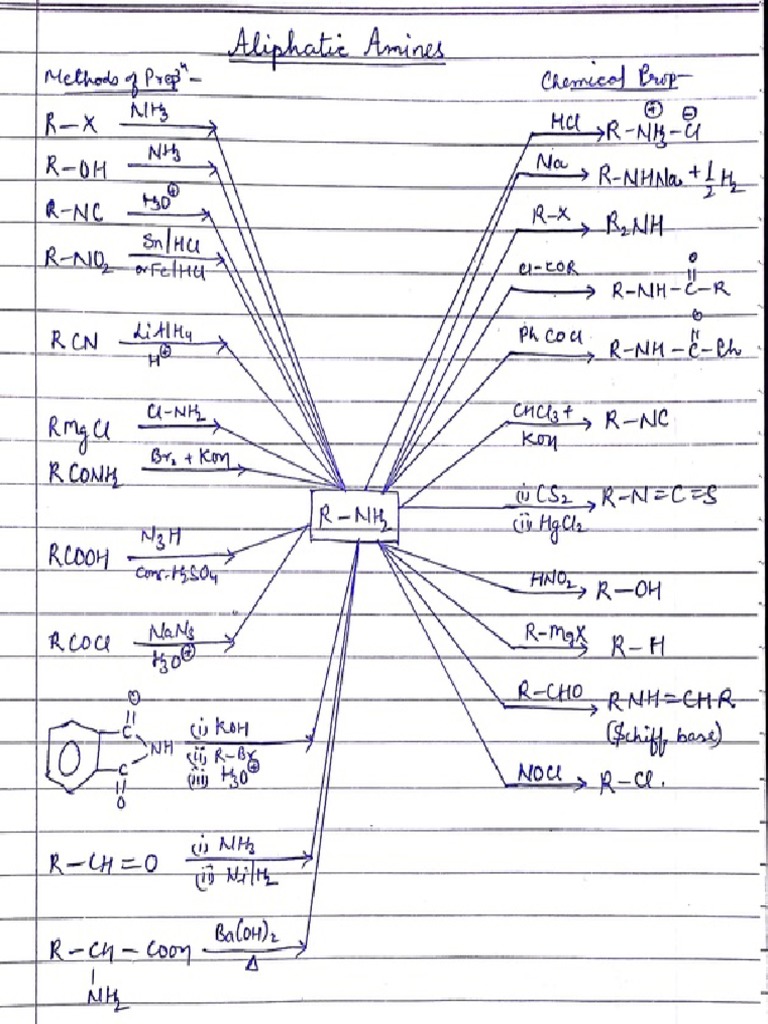 Aliphatic Amines
Methods of Prepⁿ-
Chemical Prop-
R-X NH3
R-OH NH3
R-NC H3O⊕
R-NO2 Sn/HCl
or Fe/HCl
RCN LiAlH4
H⊕
RMgCl Cl-NH2
RCONH2 Br2 + KOH
RCOOH N3H
Conc-H2SO4
RCOCl NaN3
H3O⊕
O
C
NH
C
O
(i) KOH
(ii) R-Br
(iii) H3O⊕
R-CH=O (i) NH3
(ii) Ni/H2
R-CH-COOH Ba(OH)2
Δ
NH2
R-NH2
HCl R-NH3⊕-Cl⊖
Na R-NHNa + 1/2 H2
R-X R2NH
Cl-COR R-NH-C-R
O
PhCOCl R-NH-C-Ph
O
CHCl3+ R-NC
KOH
(i) CS2 R-N=C=S
(ii) HgCl2
HNO2 R-OH
R-MgX R-H
R-CHO RNH=CHR
(Schiff base)
NOCl R-Cl.